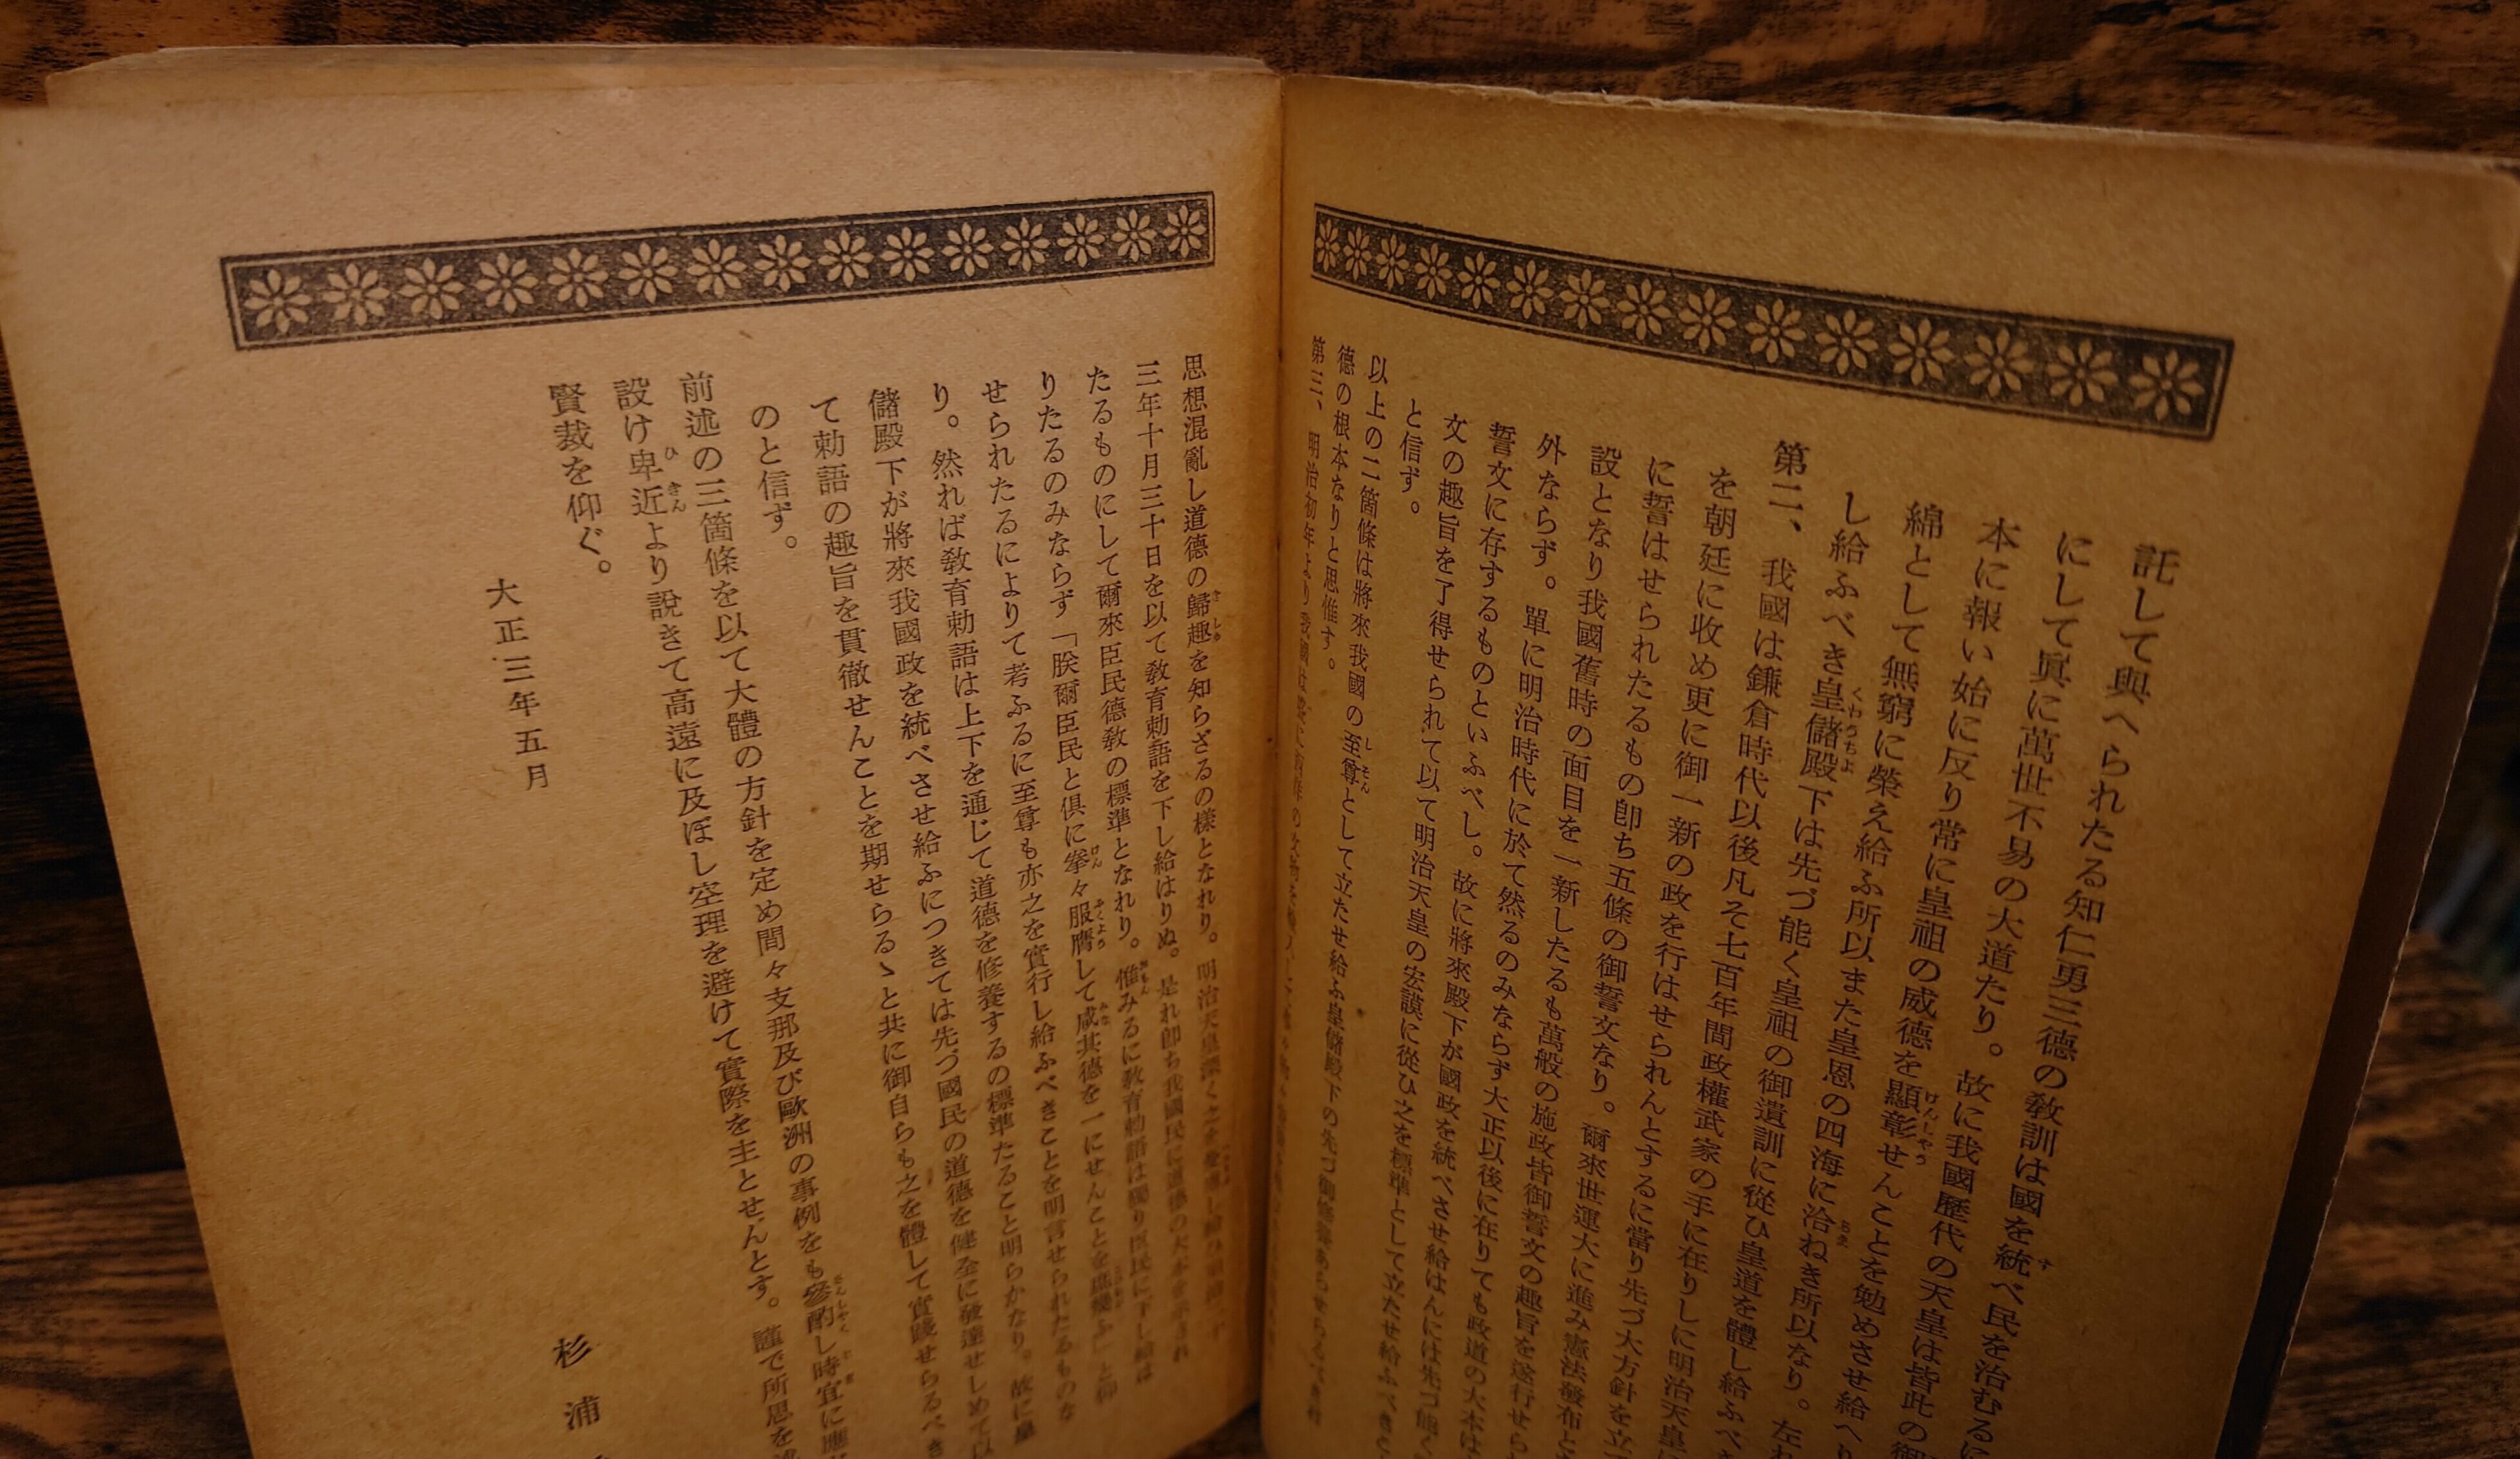 託して與へられたる知仁勇三德の敎訓は國を統べ民を治むるに
にして眞に萬世不易の大道たり。故に我國歷代の天皇は皆此の御
本に報い始に反り常に皇祖の威德を顯彰せんことを勉めさせ給へり
綿として無窮に榮え給ふ所以また皇恩の四海に洽ねき所以なり。左れ
し給ふべき皇儲殿下は先づ能く皇祖の御遺訓に從ひ皇道を體し給ふべき
第二、我國は鎌倉時代以後凡そ七百年間政權武家の手に在りしに明治天皇
を朝廷に收め更に御一新の政を行はせられんとするに當り先づ大方針を立
に誓はせられたるもの卽ち五條の御誓文なり。爾來世運大に進み憲法發布と
設となり我國舊時の面目を一新したるも萬般の施政皆御誓文の趣旨を遂行せら
外ならず。單に明治時代に於て然るのみならず大正以後に在りても政道の大本は
誓文に存するものといふべし。故に將來殿下が國政を統べさせ給はんには先づ能く
文の趣旨を了得せられて以て明治天皇の宏謨に從ひ之を標準として立たせ給ふべきこ
と信ず。
以上の二箇條は將來我國の至尊として立たせ給ふ皇儲殿下の先づ御修養あらせらるべき
德の根本なりと思惟す。
第三、明治初年より我國は
思想混亂し道德の歸趣を知らざるの樣となれり。明治天皇深く之を
三年十月三十日を以て敎育勅語を下し給はりぬ。是れ卽ち我國民に道德の大本を示され
たるものにして爾來臣民德敎の標準となれり。惟みるに敎育勅語は獨り臣民に下し給は
りたるのみならず「朕爾臣民と俱に拳々服膺して咸其德を一にせんことを庶幾ふ」と仰
せられたるによりて考ふるに至尊も亦之を實行し給ふべきことを明言せられたるものな
り。然れば敎育勅語は上下を通じて道德を修養するの標準たること明らかなり。故に皇
儲殿下が將來我國政を統べさせ給ふにつきては先づ國民の道德を健全に發達せしめて以
て勅語の趣旨を貫徹せんことを期せらるゝと共に御自らも之を體して實踐せらるべき
のと信ず。
前述の三箇條を以て大體の方針を定め間々支那及び歐洲の事例をも參酌し時宜に應
設け卑近より說きて高遠に及ぼし空理を避けて實際を主とせんとす。謹で所思を
賢裁を仰ぐ。
大正三年五月
杉浦